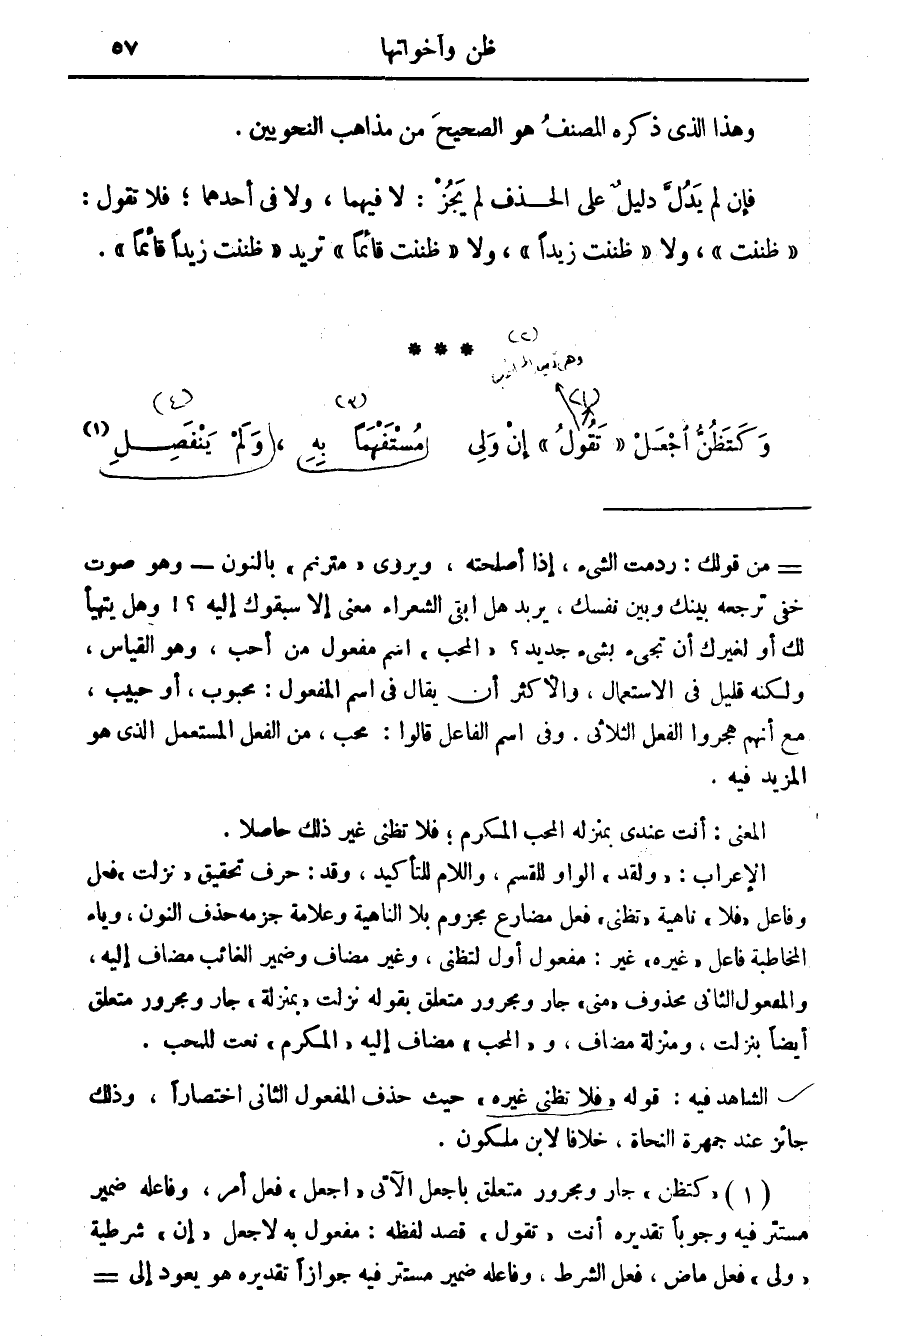 ظن وأخواتها ٥٧
وهذا الذى ذكره المصنفُ هو الصحيحَ من مذاهب النحويين .
فإن لم يَدُلَّ دليلٌ على الحـذف لم يَجُزْ : لا فيهما ، ولا فى أحدهما ؛ فلا تقول :
« ظننت » ، ولا « ظننت زيداً » ، ولا « ظننت قائماً » تريد « ظننت زيداً قائماً » .
* * *
(٢)
(١) (٣) (٤)
وَكَتَظُنُّ اجْعَلْ « تَقُولُ » إنْ وَلِى مُسْتَفْهَمًا بِهِ ، وَلَمْ يَنْفَصِـلِ (١)
= من قولك : ردمت الشىء ، إذا أصلحته ، ويروى « مترنم » بالنون — وهو صوت
خفى ترجعه بينك وبين نفسك ، يريد هل ابقى الشعراء معنى إلا سبقوك إليه ؟ ! وهل يتهيأ
لك أو لغيرك أن تجىء بشىء جديد ؟ « المحب » اسم مفعول من أحب ، وهو القياس ،
ولكنه قليل فى الاستعمال ، والأكثر أن يقال فى اسم المفعول : محبوب ، أو حبيب ،
مع أنهم هجروا الفعل الثلاثى . وفى اسم الفاعل قالوا : محب ، من الفعل المستعمل الذى هو
المزيد فيه .
المعنى : أنت عندى بمنزله المحب المكرم ؛ فلا تظنى غير ذلك حاصلا .
الإعراب : « ولقد » الواو للقسم ، واللام للتأكيد ، وقد : حرف تحقيق « نزلت » فعل
وفاعل « فلا » ناهية « تظنى » فعل مضارع مجزوم بلا الناهية وعلامة جزمه حذف النون ، وياء
المخاطبة فاعل « غيره » غير : مفعول أول لتظنى ، وغير مضاف وضمير الغائب مضاف إليه ،
والمفعول الثانى محذوف « منى » جار ومجرور متعلق بقوله نزلت « بمنزلة » جار ومجرور متعلق
أيضاً بنزلت ، ومنزلة مضاف ، و « المحب » مضاف إليه « المكرم » نعت للمحب .
الشاهد فيه : قوله « فلا تظنى غيره » حيث حذف المفعول الثانى اختصاراً ، وذلك
جائز عند جمهرة النحاة ، خلافا لابن ملكون .
(١) « كتظن » جار ومجرور متعلق باجعل الآتى « اجعل » فعل أمر ، وفاعله ضمير
مستتر فيه وجوباً تقديره أنت « تقول » قصد لفظه : مفعول به لاجعل « إن » شرطية
« ولى » فعل ماض ، فعل الشرط ، وفاعله ضمير مستتر فيه جوازاً تقديره هو يعود إلى =